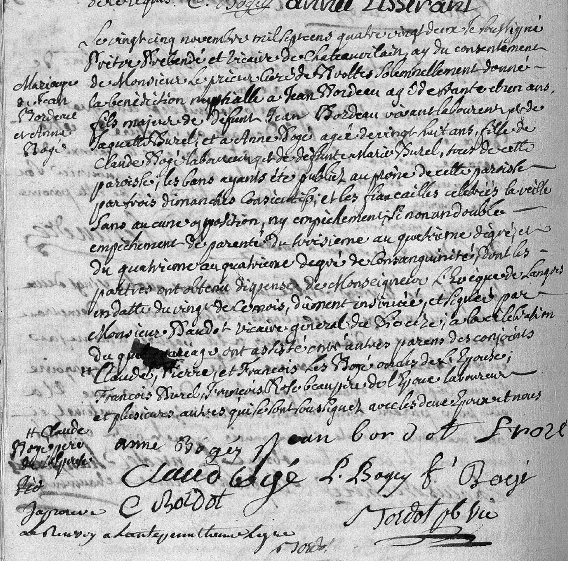 Le vingt cinq novembre mil sept cens quatre vingt deux je soussigné
Prêtre Prébendé et vicaire de Chateauvilain, ay du consentement
de Monsieur Le prieur Curé de solemnellement donné
la bénédiction nuptialle a Jean Bordeau agé de trante et un ans,
fils majeur de défunt Jean Bordeau vivant laboureur, et de
Jaquette Burel; et a Anne Bogé agée de vingt huit ans, fille de
Claude Bogé laboureur, et de défunte Marie Burel, tous de cette
paroisse, les bans ayants été publiez au prône de cette paroisse
par trois dimanches Consécutifs, et les fiancailles celébrés la veille
Sans aucune opposition, ny empêchement, si non un double
empêchement de parenté du troisième au quatrième degré, et
du quatrième au quatrième degré de Consanguinité, dont les
parties ont obtenu dispense de Monseigneur L'Evêque de Langres
en datte du vingt de ce mois, dument insinuée, et signée par
Monsieur Baudot vicaire général du Diocèse; a la célébration
du quel mariage ont assisté entre autres parens des conjoints
Claude, Pierre, et François Les Bogé de L'Epouse,
François Burel, François beaupere de l'Epoux laboureur
et plusieurs autres qui se sont soussignez avec les deux Epoux et nous
Mariage
de Jean
Bordeau
et Anne
Bogé
anne Bogey Jean bordot
Claud Bogé P. Bogey f. Bogé
C Bordot
Bordot pb vic
Claude
Bogé pere
de l'Epouse
J'approuve
le Renvoy